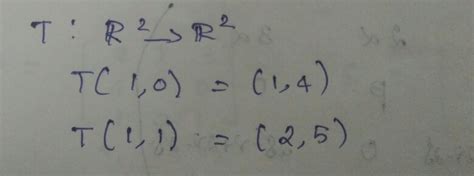 T : ℝ² → ℝ²
T(1,0) = (1,4)
T(1,1) = (2,5)